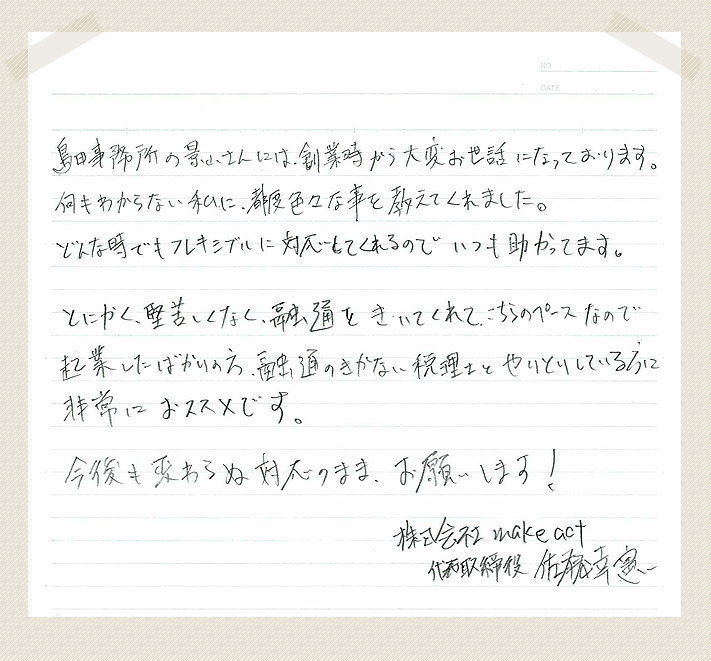 NO
DATE
島田事務所の景山さんには、創業時から大変お世話になっております。
何もわからない私に、都度色々な事を教えてくれました。
どんな時でもフレキシブルに対応してくれるのでいつも助かってます。
とにかく、堅苦しくなく、融通をきいてくれて、こちらのペースなので
起業したばかりの方、融通のきかない税理士とやりとりしている方に
非常におススメです。
今後も変わらぬ対応のまま、お願いします!
株式会社 make act
代表取締役 佐藤幸憲